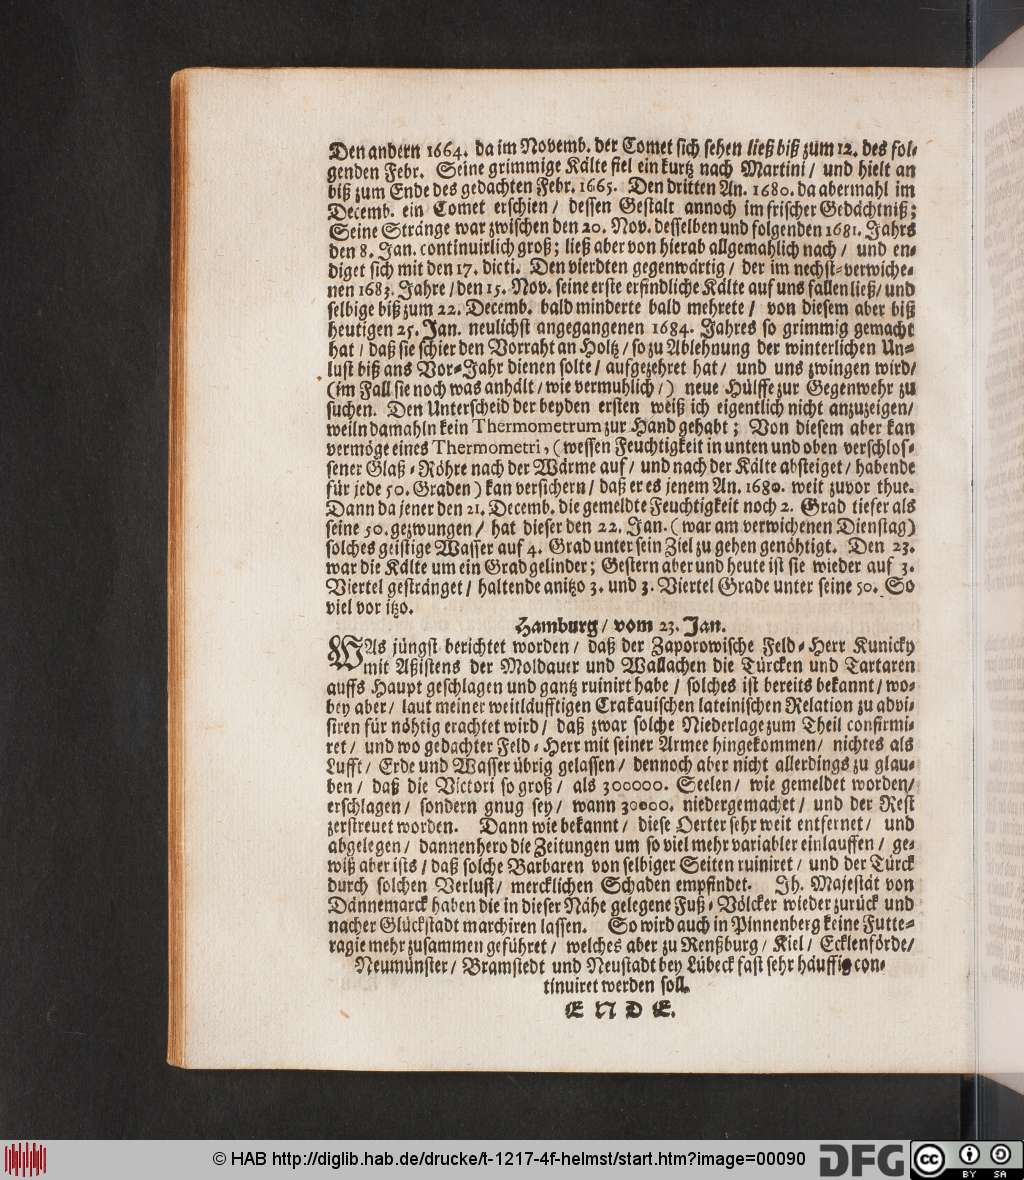 Den andern 1664. da im Novemb. der Comet sich sehen ließ biß zum 12. des fol-
genden Febr. Seine grimmige Kälte fiel ein kurtz nach Martini / und hielt an
biß zum Ende des gedachten Febr. 1665. Den dritten An. 1680. da abermahl im
Decemb. ein Comet erschien / dessen Gestalt annoch im frischer Gedächtniß;
Seine Stränge war zwischen den 20. Nov. desselben und folgenden 1681. Jahrs
den 8. Jan. continuirlich groß; ließ aber von hierab allgemahlich nach / und en-
diget sich mit den 17. dicti. Den vierdten gegenwärtig / der im nechst-verwiche-
nen 1683. Jahre / den 15. Nov. seine erste erfindliche Kälte auf uns fallen ließ / und
selbige biß zum 22. Decemb. bald minderte bald mehrete / von diesem aber biß
heutigen 25. Jan. neulichst angegangenen 1684. Jahres so grimmig gemacht
hat / daß sie schier den Vorraht an Holtz / so zu Ablehnung der winterlichen Un-
lust biß ans Vor-Jahr dienen solte / aufgezehret hat / und uns zwingen wird /
(im Fall sie noch was anhält / wie vermuhlich /) neue Hülffe zur Gegenwehr zu
suchen. Den Unterscheid der beyden ersten weiß ich eigentlich nicht anzuzeigen /
weiln damahln kein Thermometrum zur Hand gehabt; Von diesem aber kan
vermöge eines Thermometri, (wessen Feuchtigkeit in unten und oben verschlos-
sener Glaß-Röhre nach der Wärme auf / und nach der Kälte absteiget / habende
für jede 50. Graden) kan versichern / daß er es jenem An. 1680. weit zuvor thue.
Dann da jener den 21. Decemb. die gemeldte Feuchtigkeit noch 2. Grad tiefer als
seine 50. gezwungen / hat dieser den 22. Jan. (war am verwichenen Dienstag)
solches geistige Wasser auf 4. Grad unter sein Ziel zu gehen genöhtigt. Den 23.
war die Kälte um ein Grad gelinder; Gestern aber und heute ist sie wieder auf 3.
Viertel gestränget / haltende anitzo 3. und 3. Viertel Grade unter seine 50. So
viel vor itzo.
Hamburg / vom 23. Jan.
WAs jüngst berichtet worden / daß der Zaporowische Feld-Herr Kunicky
mit Aßistens der Moldauer und Wallachen die Türcken und Tartaren
auffs Haupt geschlagen und gantz ruinirt habe / solches ist bereits bekannt / wo-
bey aber / laut meiner weitläufftigen Crakauischen lateinischen Relation zu advi-
siren für nöhtig erachtet wird / daß zwar solche Niederlage zum Theil confirmi-
ret / und wo gedachter Feld-Herr mit seiner Armee hingekommen / nichtes als
Lufft / Erde und Wasser übrig gelassen / dennoch aber nicht allerdings zu glau-
ben / daß die Victori so groß / als 300000. Seelen / wie gemeldet worden /
erschlagen / sondern gnug sey / wann 30000. niedergemachet / und der Rest
zerstreuet worden. Dann wie bekannt / diese Oerter sehr weit entfernet / und
abgelegen / dannenhero die Zeitungen um so viel mehr variabler einlauffen / ge-
wiß aber ists / daß solche Barbaren von selbiger Seiten ruiniret / und der Türck
durch solchen Verlust / mercklichen Schaden empfindet. Ih. Majestät von
Dännemarck haben die in dieser Nähe gelegene Fuß-Völcker wieder zurück und
nacher Glückstadt marchiren lassen. So wird auch in Pinnenberg keine Futte-
ragie mehr zusammen geführet / welches aber zu Renßburg / Kiel / Ecklenförde /
Neumünster / Bramstedt und Neustadt bey Lübeck fast sehr häuffig con-
tinuiret werden soll.
ENDE.
© HAB http://diglib.hab.de/drucke/t-1217-4f-helmst/start.htm?image=00090
DFG
cc BY SA